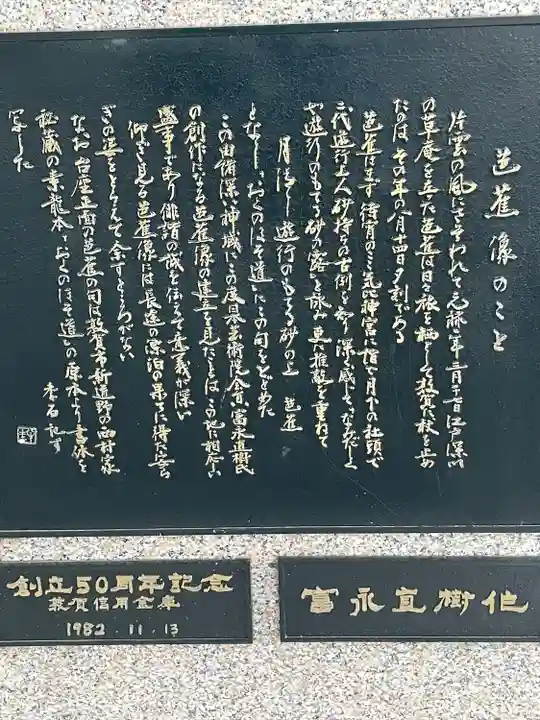 芭蕉像のこと
片雲の風にさそわれて元禄二年三月二十七日江戸深川
の草庵を立った芭蕉は日々旅を栖として敦賀に杖を止め
たのは その年の八月十四日夕刻である
芭蕉はまず待宵のこゝ気比神宮に詣で月下の社頭で
二代遊行上人砂持ちの古例を知り深く感じ なみだしく
や遊行のもてる砂の露 と詠み 更に推敲を重ねて
月清し遊行のもてる砂の上 芭蕉
となし おくのほそ道にこの句をとどめた
この由緒深い神域にこの度日展芸術院会員富永直樹氏
の創作による芭蕉像の建立を見たことは この地に相応しい
盛事であり 俳諧の誠を伝えて意義が深い
仰ぎ見る芭蕉像には長途の漂泊の果に得た安ら
ぎの姿をとらえて余すところがない
なお 台座正面の芭蕉の句は敦賀市新道野の西村家
秘蔵の素龍本「おくのほそ道」の原本より書体を
写した
創立50周年記念
敦賀信用金庫
1982 11 13
富永直樹作